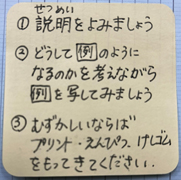 せつめい
① 説明をよみましょう
② どうして例のように
なるのかを考えながら
例を写してみましょう
③ むずかしいならば
プリント・えんぴつ、けしゴム
をもってきてください.